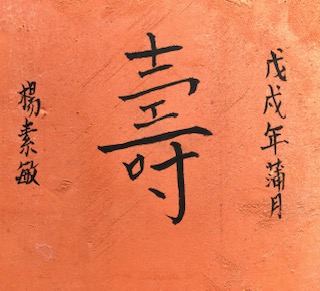 戊戌年蒲月
壽
楊素敏